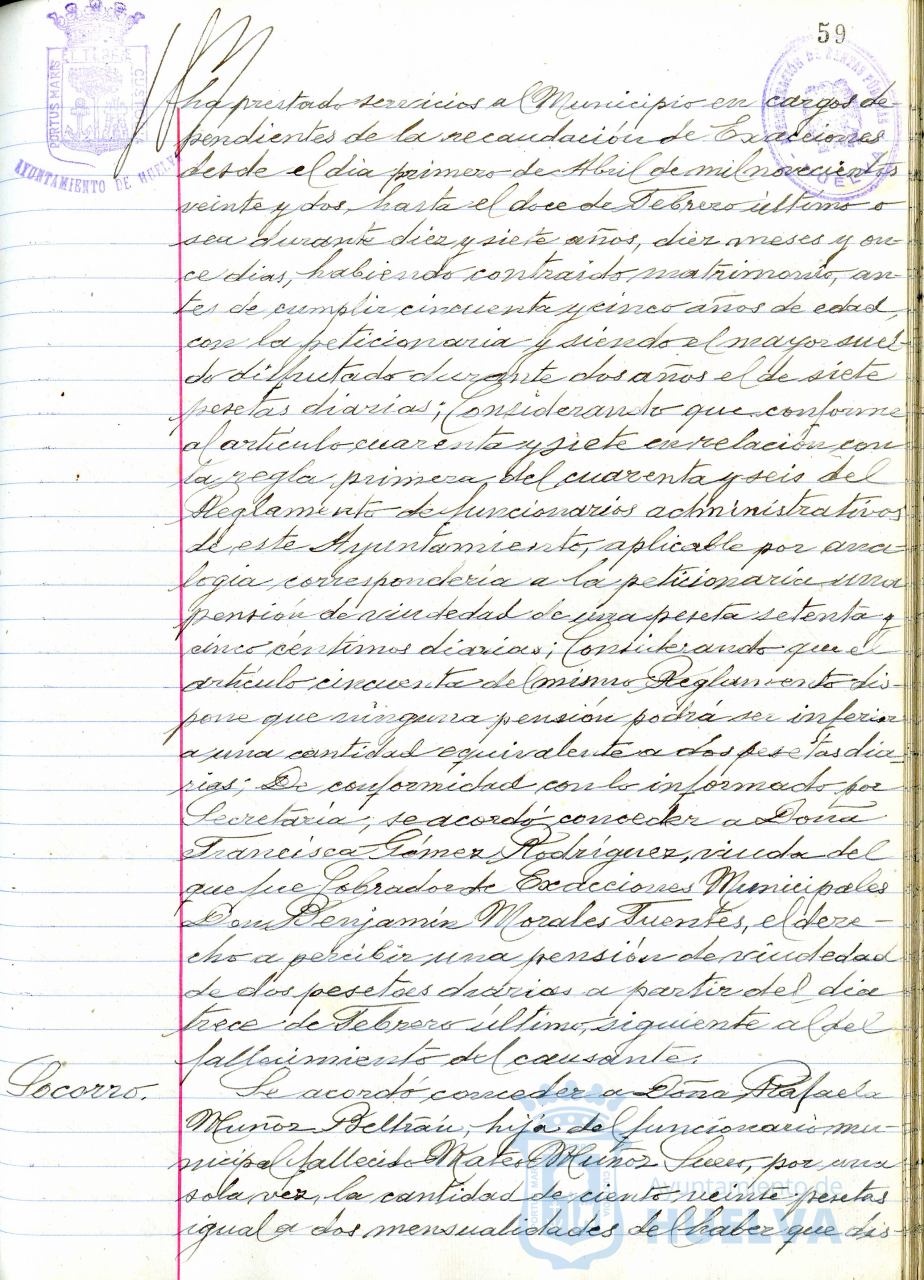 59
PORTUS MARIS
CUSTODIA
AYUNTAMIENTO DE HUELVA
HUELVA
ha prestado servicios al Municipio en cargos de-
pendientes de la recaudación de Exacciones
desde el dia primero de Abril de mil novecientos
veinte y dos, hasta el doce de Febrero último o
sea durante diez y siete años, diez meses y on-
ce dias, habiendo contraido matrimonio, an-
tes de cumplir cincuenta y cinco años de edad,
con la peticionaria y siendo el mayor suel-
do disfrutado durante dos años el de siete
pesetas diarias; Considerando que conforme
al artículo cuarenta y siete en relación con
la regla primera del cuarenta y seis del
Reglamento de funcionarios administrativos
de este Ayuntamiento, aplicable por ana-
logia, correspondería a la peticionaria una
pensión de viudedad de una peseta setenta y
cinco céntimos diarias; Considerando que el
artículo cincuenta del mismo Reglamento dis-
pone que ninguna pensión podrá ser inferior
a una cantidad equivalente a dos pesetas dia-
rias; De conformidad con lo informado por
Secretária, se acordó conceder a Doña
Francisca Gómez Rodríguez, viuda del
que fue Cobrador de Exacciones Municipales
Don Benjamín Morales Fuentes, el dere-
cho a percibir una pensión de viudedad
de dos pesetas diarias a partir del dia
trece de Febrero último, siguiente al del
fallecimiento del causante.
Socorro. Se acordó conceder a Doña Rafaela
Muñoz Beltrán, hija del funcionario mu-
nicipal fallecido Mateo Muñoz, por una
sola vez, la cantidad de ciento veinte pesetas
igual a dos mensualidades del haber que dis-
Ayuntamiento de
HUELVA